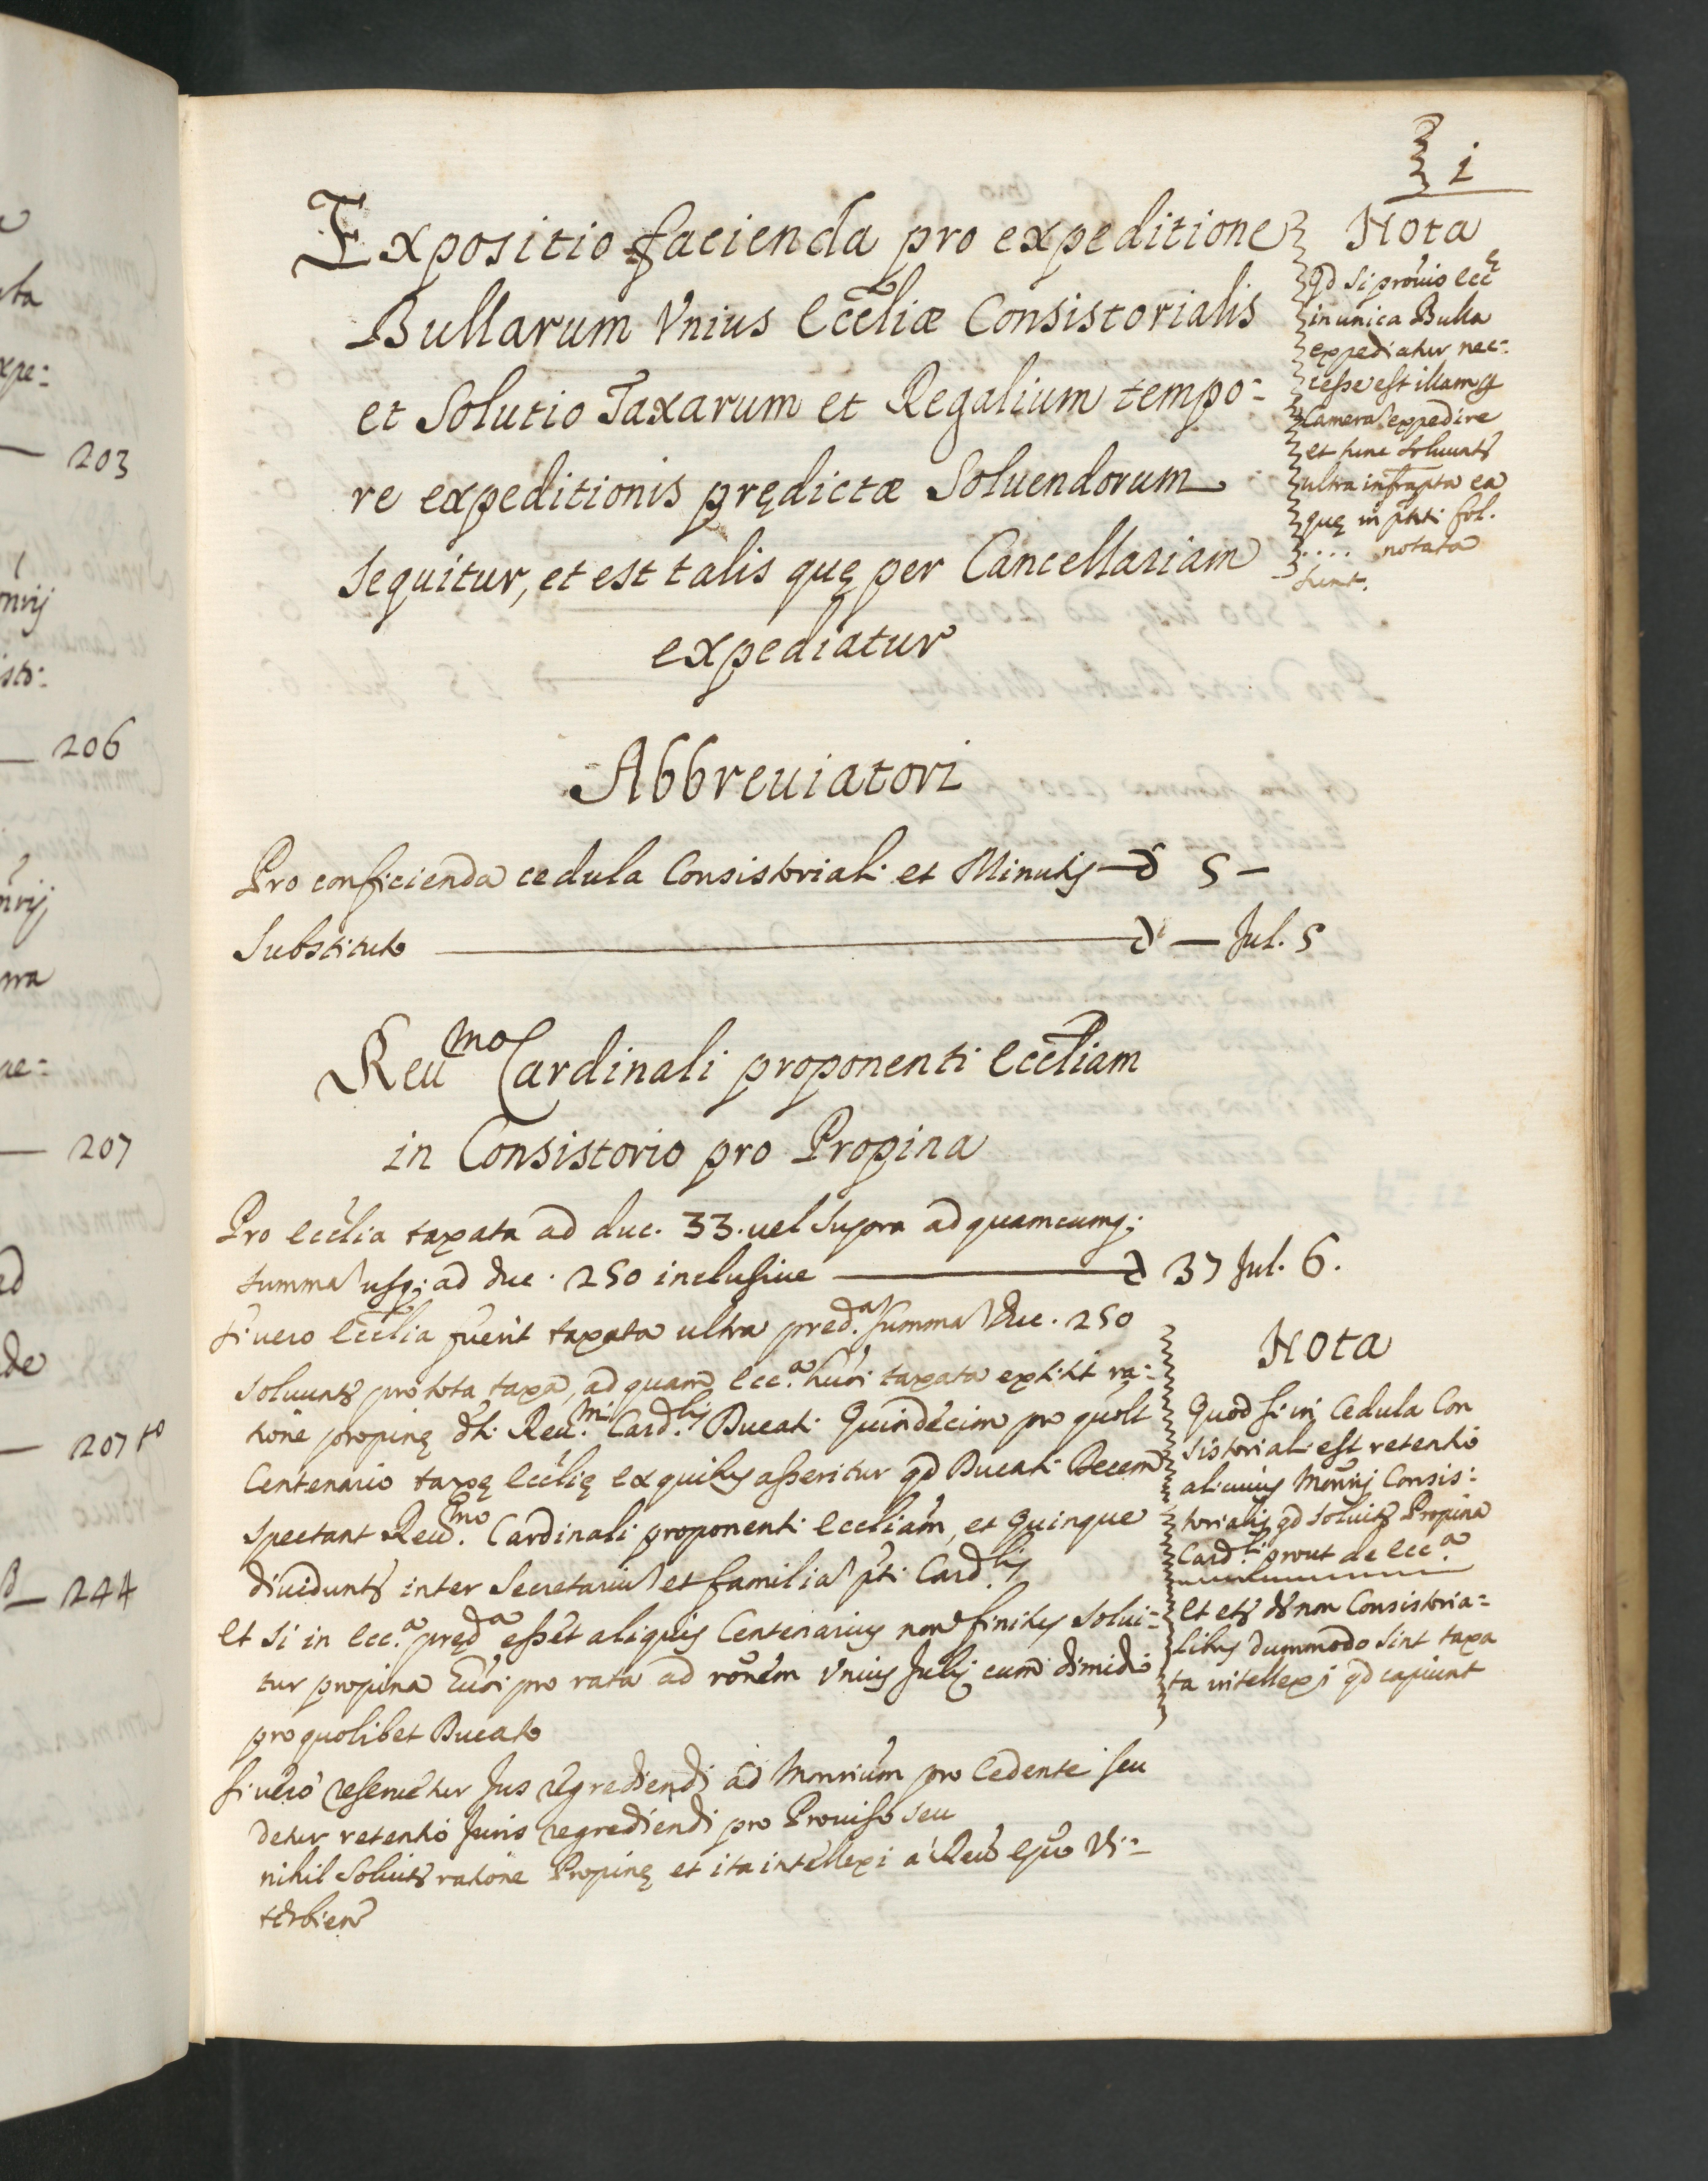 1
Expositio facienda pro expeditione
Bullarum Vnius Eccliæ Consistorialis
et Solutio Taxarum et Regalium tempo-
re expeditionis prędictæ Soluendorum
sequitur, et est talis quę per Cancellariam
expediatur
Nota
qd si prouio Ecc
in unica Bulla
expediatur nec-
cesse est illam
Camera expedire
et tunc soluuntr
ultra infrapta ea
quę in fol.
.... notata
sunt.
Abbreuiatori
Pro conficienda cedula Consistoriali et Minutis — d 5 —
Substituto — d — Jul. 5
Reumo Cardinali proponenti Eccliam
in Consistorio pro Propina
Pro Ecclia taxata ad duc. 33. uel supra ad quamcumq;
summa usq; ad duc. 250 inclusiue — d 37 Jul. 6.
si uero Ecclia fuerit taxata ultra pred.a summa duc. 250
soluuntr pro tota taxa, ad quam Ecc.a taxata extitit ra-
tione propinę dti Reu.mi Card.lis Ducati Quindecim pro quolt
Centenario taxę Ecclię ex quibus asseritur qd Ducati Decem
spectant Reu.mo Cardinali proponenti Eccliam, et quinque
diuiduntr inter Secretariu et familia pti Card.lis
Et si in Ecc.a pred.a esset aliquis Centenarius non finitus solui-
tur propina pro rata ad ronem Vnius Julij cum dimidio
pro quolibet Ducato
si uero reseruetur Jus regrediendi ad Monrium pro Cedente seu
detur retentio Juris regrediendi pro Prouiso seu
nihil soluitr ratione Propinę et ita intellexi a Reu Epo Vi-
terbien
Nota
Quod si in Cedula Con
sistoriali est retentio
alicuius Monrij Consis-
torialis qd soluitr Propina
Card.li prout de Ecc.a
Et etr de non Consistoria-
libus dummodo sint taxa
ta intellexi qd capiunt
203
206
207
207 to
244